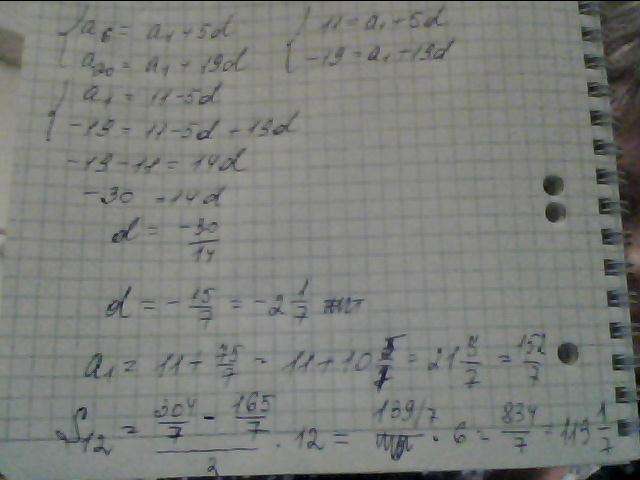 { a₆ = a₁ + 5d { 11 = a₁ + 5d
a₂₀ = a₁ + 19d -19 = a₁ - 19d
{ a₁ = 11 - 5d
-19 = 11 - 5d + 19d
-19 - 11 = 14d
-30 = 14d
d = -30/14
d = -15/7 = -2 1/7
a₁ = 11 + 75/7 = 11 + 10 5/7 = 21 5/7 = 152/7
S₁₂ = (304/7 - 165/7)/2 · 12 = 139/7 · 6 = 834/7 = 119 1/7